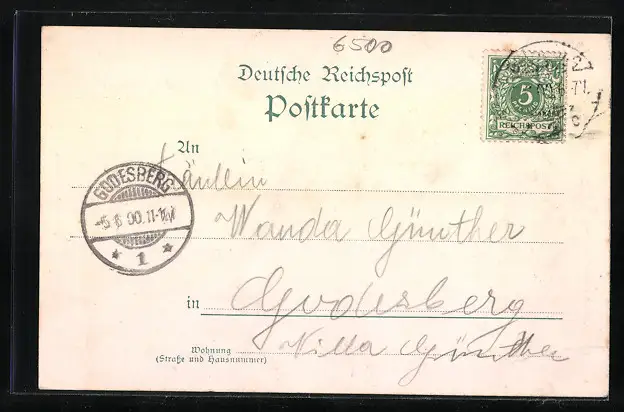 6500
Deutsche Reichspost
Postkarte
5
REICHSPOST
An
Fräulein
GODESBERG
-5 6 00.11-12V
* 1 *
Wanda Günther
in Godesberg
Wohnung
(Straße und Hausnummer)
Villa Günther